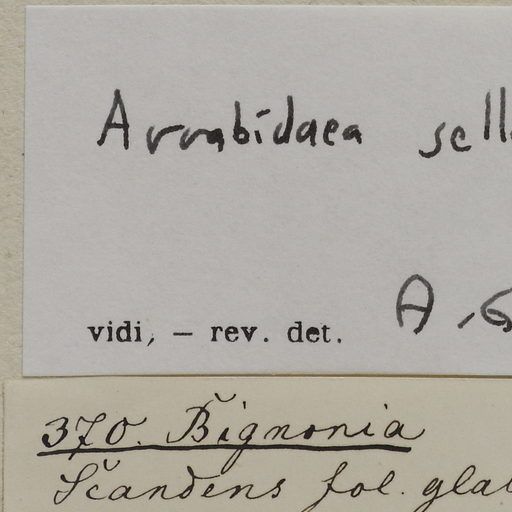 Arrabidaea sell
A. G
vidi, — rev. det.
370. Bignonia
Scandens fol. gla